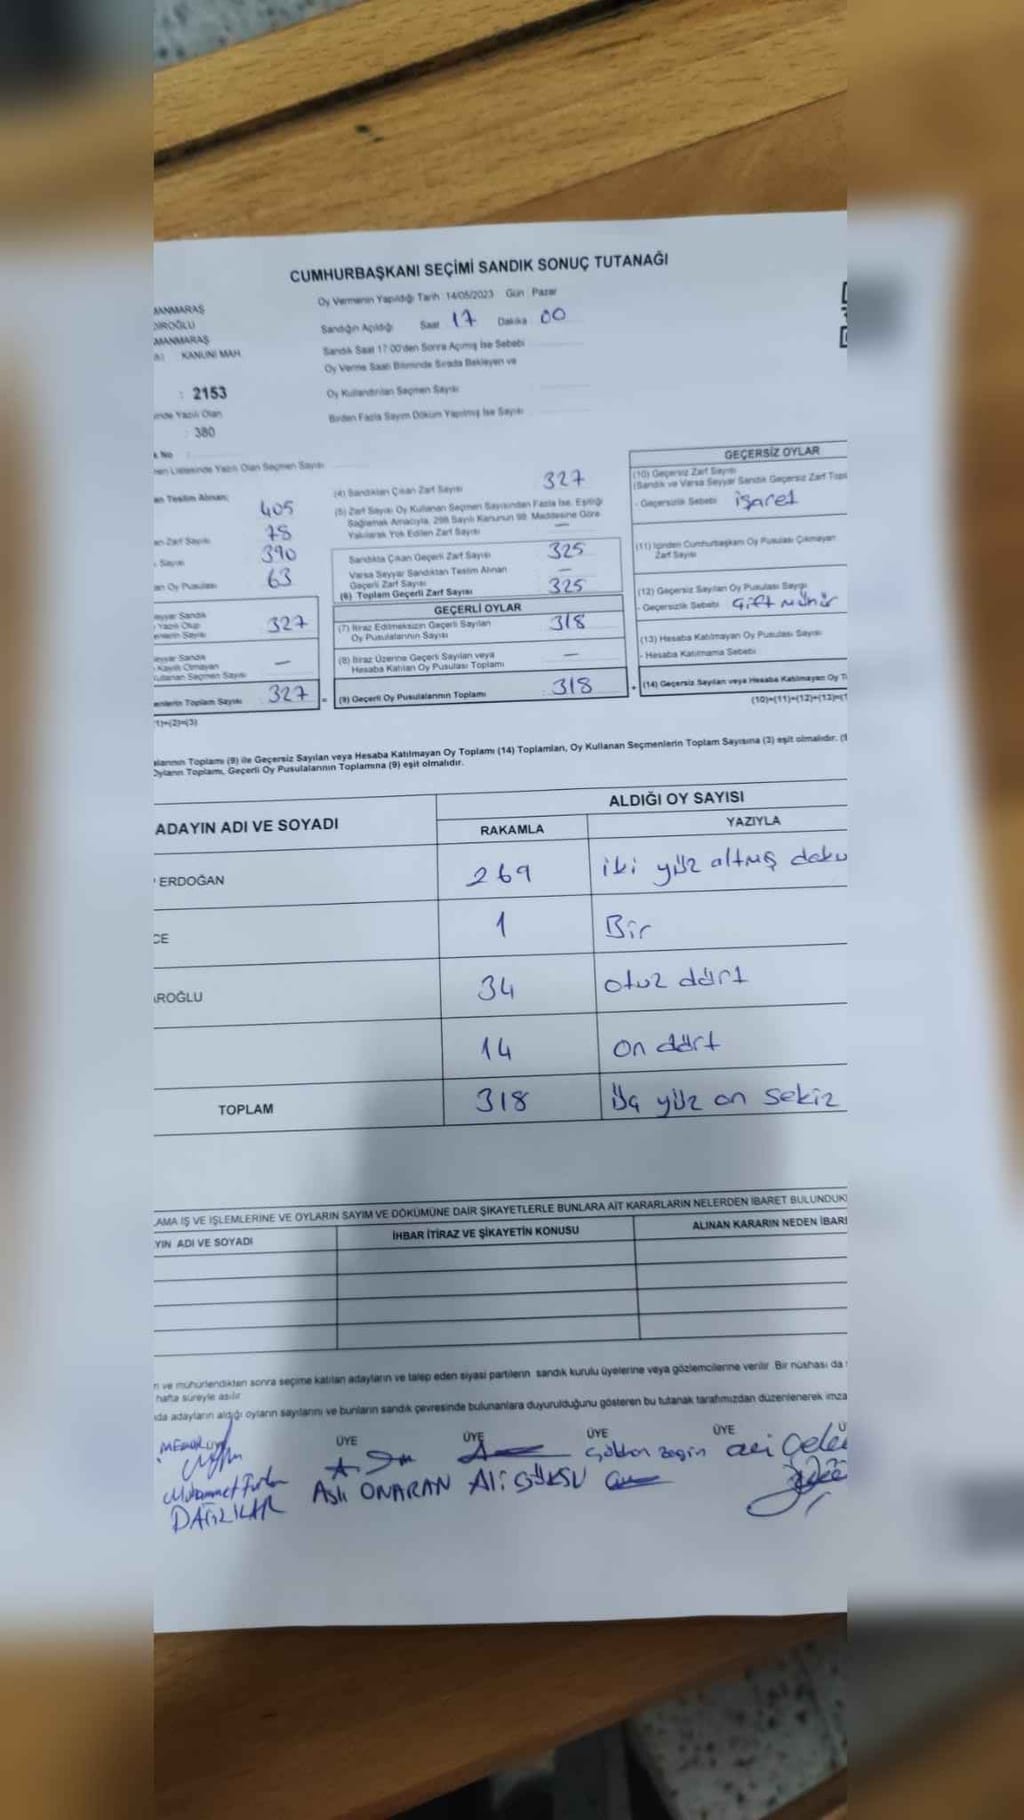 CUMHURBAŞKANI SEÇİMİ SANDIK SONUÇ TUTANAĞI
MANMARAŞ
Oy Vermenin Yapıldığı Tarih 14/05/2023 Gün Pazar
DİROĞLU
Sandığın Açıldığı Saat 17 Dakika 00
MANMARAŞ
KANUNİ MAH
Sandık Saat 17:00'den Sonra Açılmış İse Sebebi
Oy Verme Saati Bitiminde Sırada Bekleyen ve
: 2153
Oy Kullandırılan Seçmen Sayısı
inde Yazılı Olan
Birden Fazla Sayım Döküm Yapılmış İse Sayısı
: 380
k No
men Listesinde Yazılı Olan Seçmen Sayısı
an Teslim Alınan;
405
an Zarf Sayısı 78
Sayısı 390
an Oy Pusulası 63
eyyar Sandık
Yazılı Olup
enlerin Sayısı 327
eyyar Sandık
Kayıtlı Olmayan
ullanan Seçmen Sayısı —
enlerin Toplam Sayısı 327
(1)+(2)=(3)
(4) Sandıktan Çıkan Zarf Sayısı 327
(5) Zarf Sayısı Oy Kullanan Seçmen Sayısından Fazla İse, Eşitliği
Sağlamak Amacıyla, 298 Sayılı Kanunun 98. Maddesine Göre
Yakılarak Yok Edilen Zarf Sayısı —
Sandıkta Çıkan Geçerli Zarf Sayısı 325
Varsa Seyyar Sandıktan Teslim Alınan
Geçerli Zarf Sayısı —
(6) Toplam Geçerli Zarf Sayısı 325
GEÇERLİ OYLAR
(7) İtiraz Edilmeksizin Geçerli Sayılan
Oy Pusulalarının Sayısı 318
(8) İtiraz Üzerine Geçerli Sayılan veya
Hesaba Katılan Oy Pusulası Toplamı —
= (9) Geçerli Oy Pusulalarının Toplamı 318 +
GEÇERSİZ OYLAR
(10) Geçersiz Zarf Sayısı
(Sandık ve Varsa Seyyar Sandık Geçersiz Zarf Topl
- Geçersizlik Sebebi işaret
(11) İçinden Cumhurbaşkanı Oy Pusulası Çıkmayan
Zarf Sayısı
(12) Geçersiz Sayılan Oy Pusulası Sayısı
- Geçersizlik Sebebi Çift mühür
(13) Hesaba Katılmayan Oy Pusulası Sayısı
- Hesaba Katılmama Sebebi
(14) Geçersiz Sayılan veya Hesaba Katılmayan Oy T
(10)+(11)+(12)+(13)=(1
alarının Toplamı (9) ile Geçersiz Sayılan veya Hesaba Katılmayan Oy Toplamı (14) Toplamları, Oy Kullanan Seçmenlerin Toplam Sayısına (3) eşit olmalıdır. (
Oyların Toplamı, Geçerli Oy Pusulalarının Toplamına (9) eşit olmalıdır.
ADAYIN ADI VE SOYADI ALDIĞI OY SAYISI
RAKAMLA YAZIYLA
ERDOĞAN 269 iki yüz altmış doku
CE 1 Bir
AROĞLU 34 otuz dört
14 on dört
TOPLAM 318 üç yüz on sekiz
LAMA İŞ VE İŞLEMLERİNE VE OYLARIN SAYIM VE DÖKÜMÜNE DAİR ŞİKAYETLERLE BUNLARA AİT KARARLARIN NELERDEN İBARET BULUNDUK
YIN ADI VE SOYADI İHBAR İTİRAZ VE ŞİKAYETİN KONUSU ALINAN KARARIN NEDEN İBAR
n ve mühürlendikten sonra seçime katılan adayların ve talep eden siyasi partilerin sandık kurulu üyelerine veya gözlemcilerine verilir. Bir nüshası da
hafta süreyle asılır
da adayların aldığı oyların sayılarını ve bunların sandık çevresinde bulunanlara duyurulduğunu gösteren bu tutanak tarafımızdan düzenlenerek imza
ÜYE ÜYE ÜYE ÜYE Ü
MEMUR ÜY
Gökhan Ali
Muhammet
DAĞLILAR Aslı ONARAN Ali GÖKSU